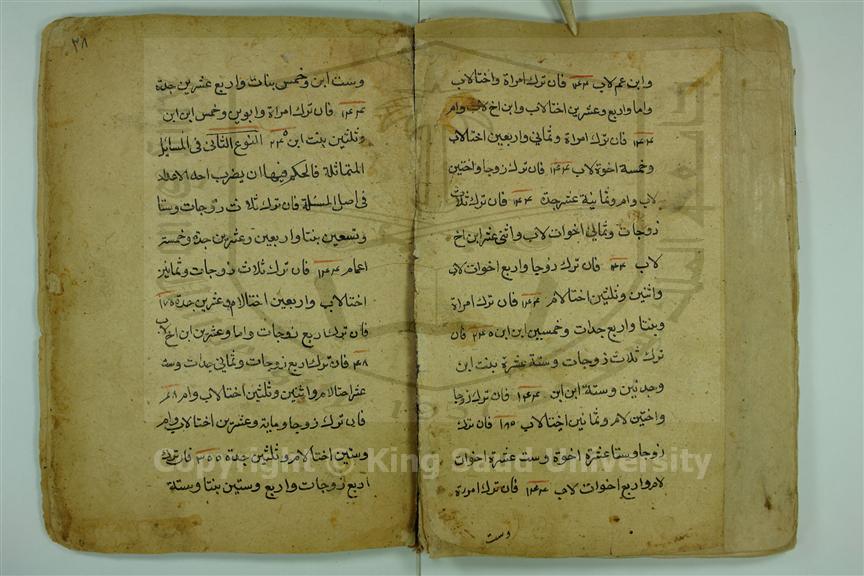 وابن عم لاب ١٤٤ فان ترك امراة واختا لاب
واما واربع وعشرين اختا لاب وابن اخ لاب وام
١٤٤ فان ترك امراة وثماني واربعين اختا لاب
وخمسة اخوة لاب ١٤٤ فان ترك زوجا واختين
لاب وام وثمانية عشر جدة ١٤٤ فان ترك ثلاث
زوجات وثماني اخوات لاب واثنى عشر ابن اخ
لاب فان ترك زوجا واربع اخوات لاب
واثنين وثلثين اختا لام فان ترك امراة
وبنتا واربع جدات وخمسين ابن ابن فان
ترك ثلاث زوجات وستة عشرة بنت ابن
وجدتين وستة ابن ابن فان ترك زوجا
واختين لام وثمانين اختا لاب فان ترك
زوجا وستا عشرة اخوة وست عشرة اخوات
لام واربع اخوات لاب فان ترك امراة
وست
٣٨
وست ابن وخمس بنات واربع عشرين جدة
١٤٤ فان ترك امراة وابوين وخمس ابن ابن
وثلثين بنت ابن النوع الثانى فى المسايل
المتماثلة فالحكم فيها ان يضرب احد الاعداد
فى اصل المسئلة فان ترك ثلاث زوجات وستا
وتسعين بنتا واربعين وعشرين جدة وخمس
اعمام ١٤٤ فان ترك ثلاث زوجات وثمانين
اختا لاب واربعين اختا لام وعشرين جدة
فان ترك اربع زوجات واما وعشرين ابن اخ لاب
٤٨ فان ترك اربع زوجات وثماني جدات وستة
عشر اختا لام واثنين وثلثين اختا لاب وام
فان ترك زوجا وماية وعشرين اختا لاب وام
وستين اختا لام وثلثين جدة فان ترك
اربع زوجات واربع وستين بنتا وستة
Copyright © King Saud University